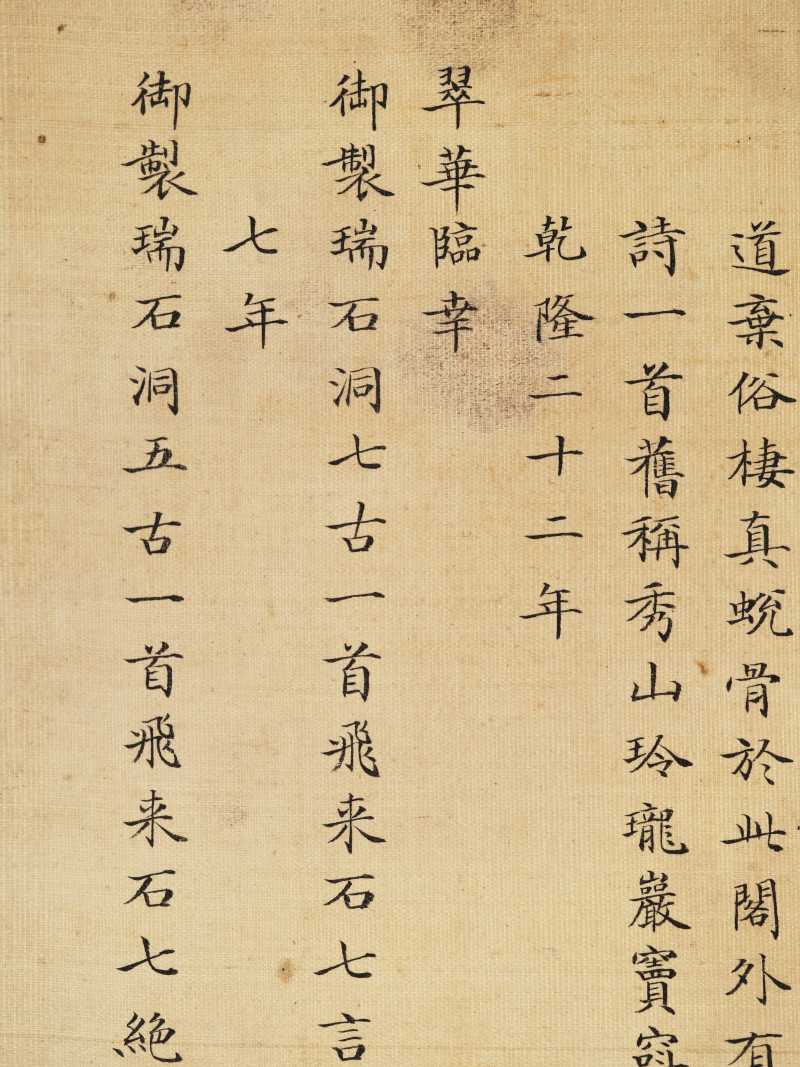 道棄俗棲真蛻骨於此閣外有
詩一首舊稱秀山玲瓏巖竇窈
乾隆二十二年
翠華臨幸
御製瑞石洞七古一首飛来石七言
七年
御製瑞石洞五古一首飛来石七絶